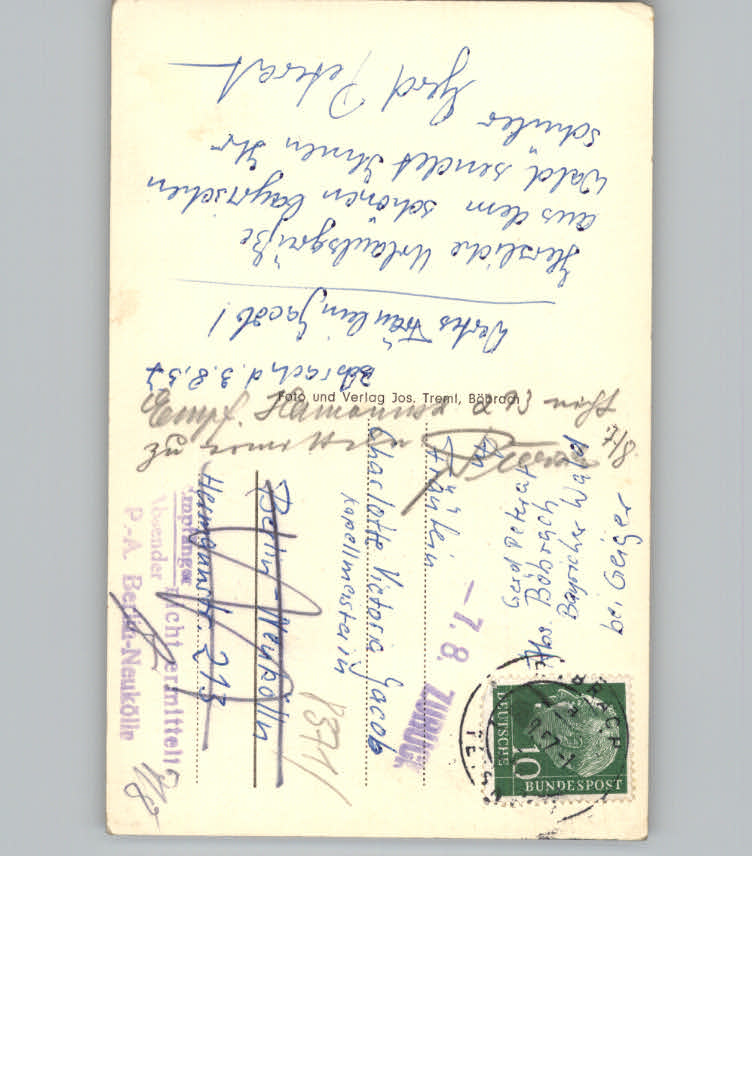 Böbrach, d. 3.8.57
Wertes Fräulein Jacob!
Herzliche Urlaubsgrüße
aus dem schönen bayrischen
Wald, sendet Ihnen Ihr
Schüler Gerd Peterat
Foto und Verlag Jos. Treml, Böbrach
Empf.
zu ermitteln
8/7.
Abs. Gerd Peterat
Böbrach
Bayrischer Wald
bei Geiger
An
Fräulein
Charlotte Victoria Jacob
Kapellmeisterin
Berlin-Neukölln
213
- 7. 8. Zurück
Empfänger
Absender nicht ermittelt
P.-A. Berlin-Neukölln
DEUTSCHE
BUNDESPOST
10